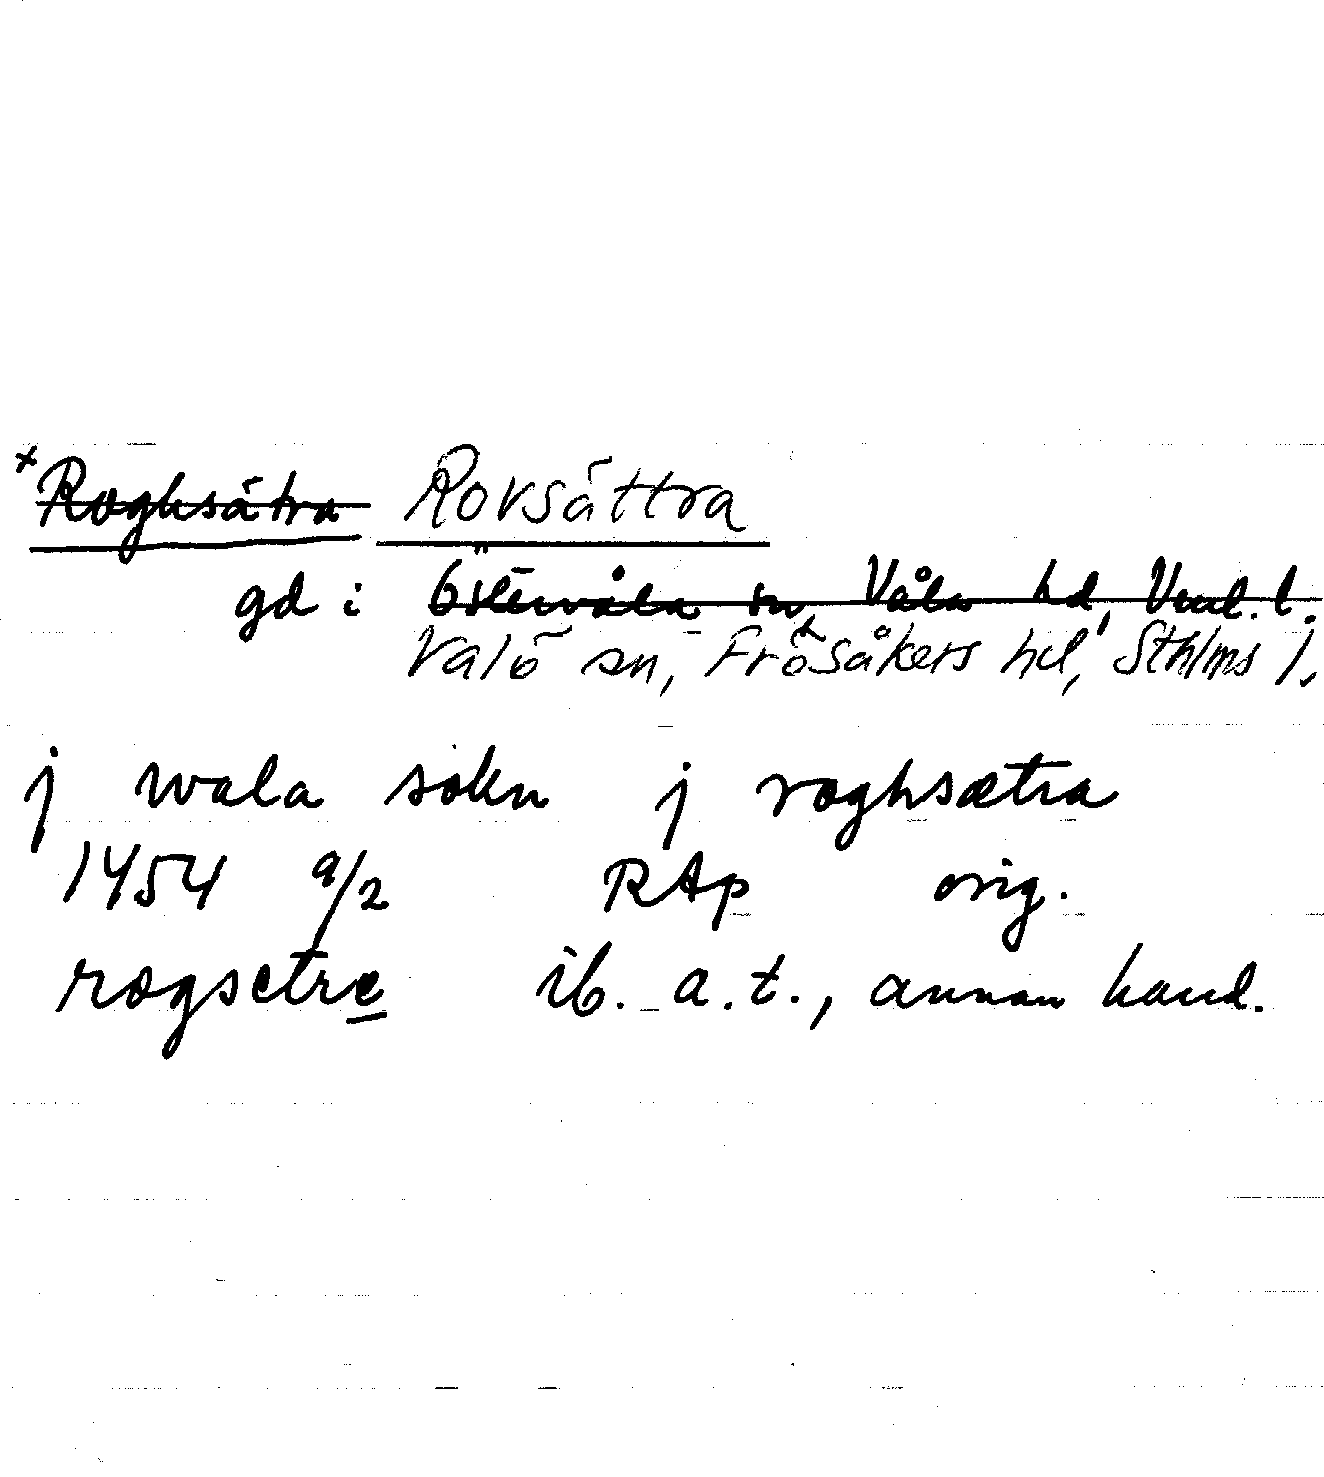 ×Roghsätra Rovsättra
gd i Östervåla sn, Våla hd, Vml. l.
Valö sn, Frösåkers hd, Sthlms l.
j wala sokn j roghsætra
1454 9/2 RAp orig.
rogsetre ib. a.t., annan hand.